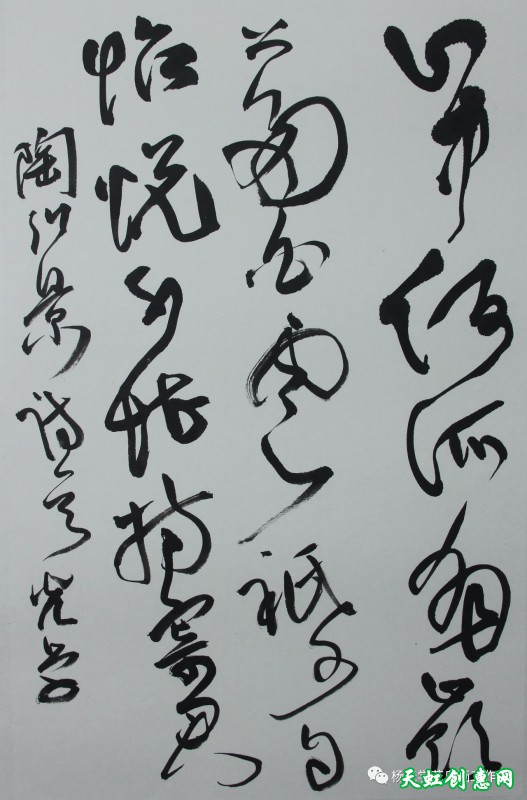 山中何所有岭
上多白云祇可自
怡悦不堪持寄君
陶弘景诗一首 光学
天虹创意网